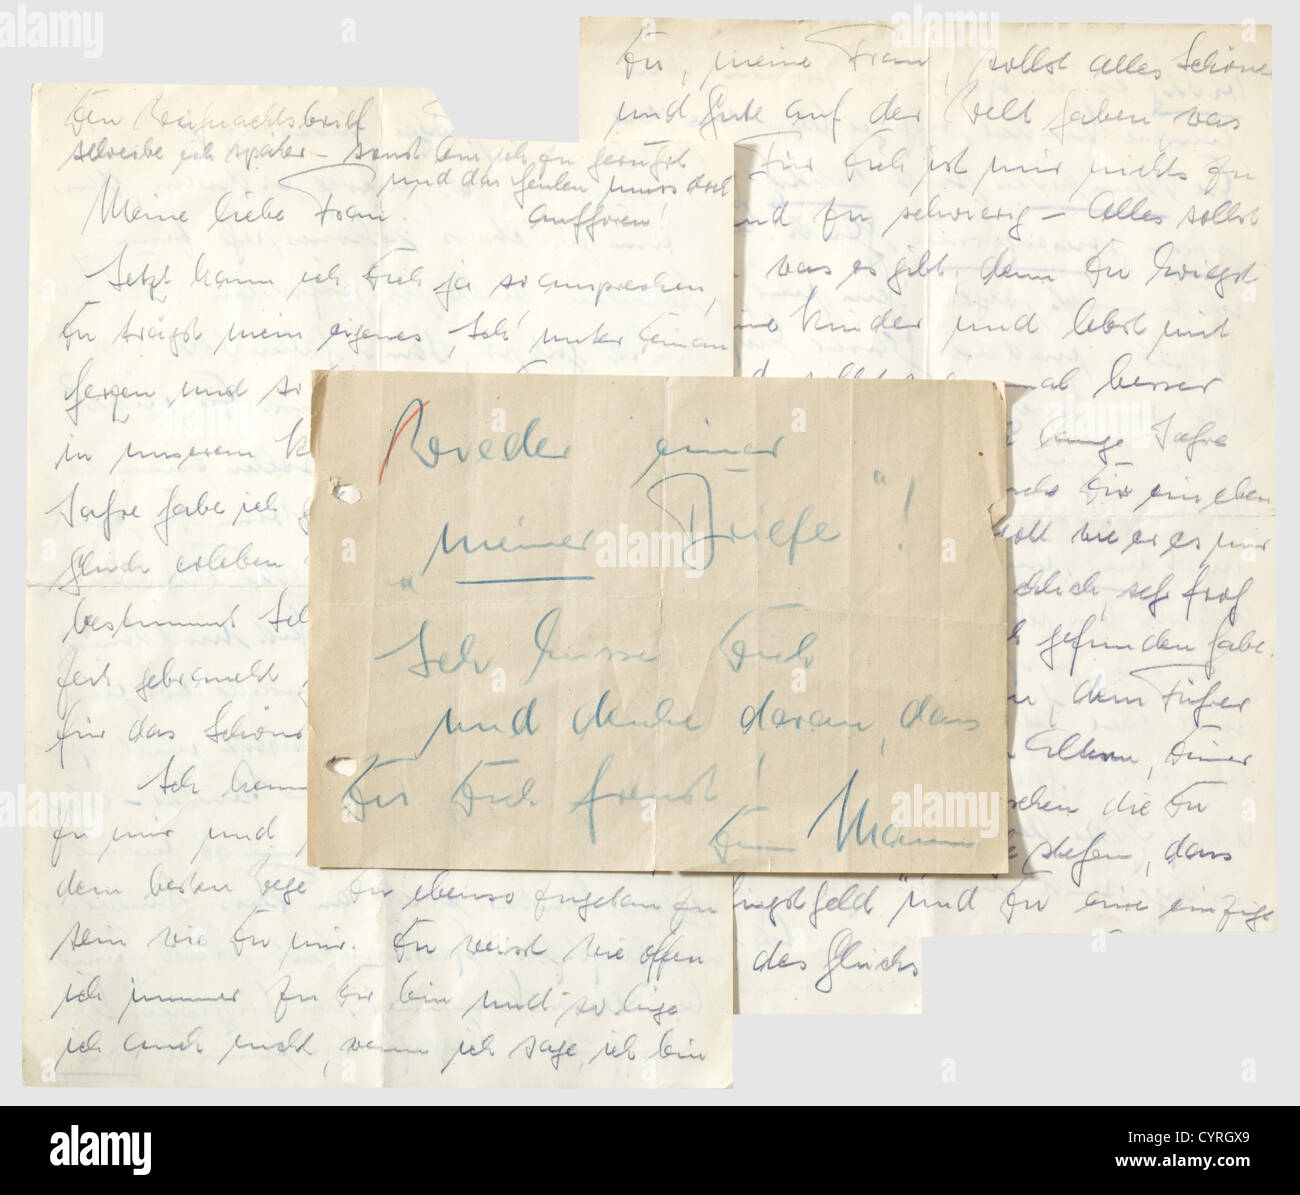 Den Weihnachtsbrief
schreibe ich später – sonst bin ich zu gerührt
und das Heulen muss doch
aufhören!
Meine liebe Frau.
Jetzt kann ich Dich ja so ansprechen,
Du trägst mein eigenes „Ich“ unter Deinem
Herzen und so
in unserem K
Jahre habe ich g
Glück erleben
bestimmt Sch
Zeit gebraucht,
für das Schöns
Ich kenn
zu mir und
dem besten Wege Du ebenso zugetan zu
sein wie Du mir. Du weisst wie offen
ich immer zu Dir bin und so lüge
ich auch nicht, wenn ich sage, ich bin
Du, meine Frau, sollst alles Schöne
und Gute auf der Welt haben was
Für Dich ist mir nichts zu
und zu schwierig – Alles sollst
was es gibt, denn Du kriegst
ne Kinder und lebst mit
mal besser
lange Jahre
Dir ein eben
voll wie er es nur
cklich, sehr froh
gefunden habe.
dem Führer
Eltern, Deiner
sehen die Du
stehen, dass
ingstgeld" und Du eine einzige
des Glücks
Wieder einer
„meiner Briefe“!
Ich küsse Dich
und denke daran, dass
Du Dich freust!
Dein Mann
alamy
Image ID: CYRGX9
www.alamy.com